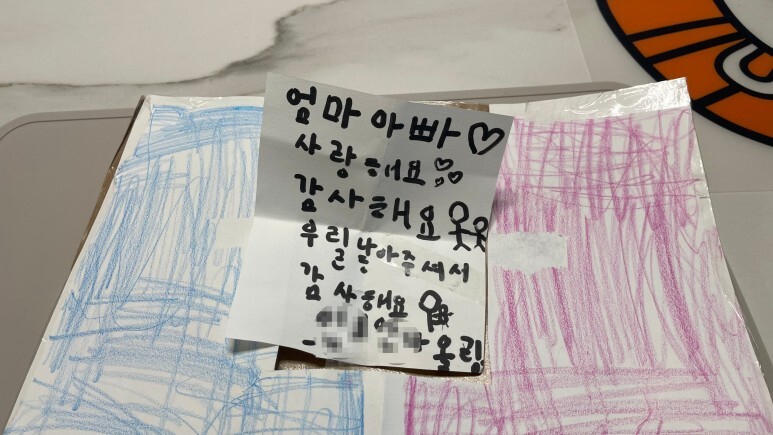 엄마 아빠♡
사랑해요
감사해요
우리 낳아주셔서
감사해요
올림